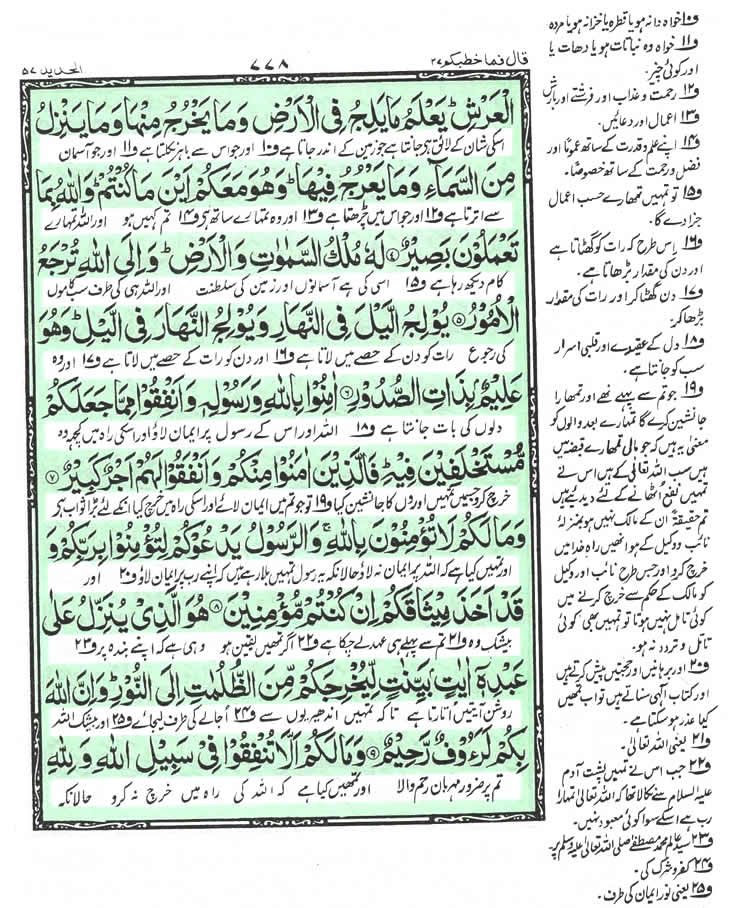 قال فما خطبکم ٢٧
٧٧٨
الحدید ٥٧
الْعَرْشِ ؕ یَعْلَمُ مَا یَلِجُ فِی الْاَرْضِ وَمَا یَخْرُجُ مِنْهَا وَمَا یَنْزِلُ
اسکی شان کے لائق ہے جانتا ہے جو زمین کے اندر جاتا ہے و١٠ اور جو اس سے باہر نکلتا ہے و١١ اور جو آسمان
مِنَ السَّمَآءِ وَمَا یَعْرُجُ فِیْهَا ؕ وَهُوَ مَعَكُمْ اَیْنَ مَا كُنْتُمْ ؕ وَاللّٰهُ بِمَا
سے اترتا ہے و١٢ اور جو اس میں چڑھتا ہے و١٣ اور وہ تمہارے ساتھ ہے و١٤ تم کہیں ہو اور اللہ تمہارے
تَعْمَلُوْنَ بَصِیْرٌ ﴿٤﴾ لَهٗ مُلْكُ السَّمٰوٰتِ وَالْاَرْضِ ؕ وَاِلَی اللّٰهِ تُرْجَعُ
کام دیکھ رہا ہے و١٥ اسی کی ہے آسمانوں اور زمین کی سلطنت اور اللہ ہی کی طرف سب کاموں
الْاُمُوْرُ ﴿٥﴾ یُوْلِجُ الَّیْلَ فِی النَّهَارِ وَیُوْلِجُ النَّهَارَ فِی الَّیْلِ ؕ وَهُوَ
کی رجوع رات کو دن کے حصے میں لاتا ہے و١٦ اور دن کو رات کے حصے میں لاتا ہے و١٧ اور وہ
عَلِیْمٌۢ بِذَاتِ الصُّدُوْرِ ﴿٦﴾ اٰمِنُوْا بِاللّٰهِ وَرَسُوْلِهٖ وَاَنْفِقُوْا مِمَّا جَعَلَكُمْ
دلوں کی بات جانتا ہے و١٨ اللہ اور اس کے رسول پر ایمان لاؤ اور اسکی راہ میں کچھ وہ
مُّسْتَخْلَفِیْنَ فِیْهِ ؕ فَالَّذِیْنَ اٰمَنُوْا مِنْكُمْ وَاَنْفَقُوْا لَهُمْ اَجْرٌ كَبِیْرٌ ﴿٧﴾
خرچ کرو جسمیں تمہیں اوروں کا جانشین کیا و١٩ تو جو تم میں ایمان لائے اور اسکی راہ میں خرچ کیا انکے لئے بڑا ثواب ہے
وَمَا لَكُمْ لَا تُؤْمِنُوْنَ بِاللّٰهِ ۚ وَالرَّسُوْلُ یَدْعُوْكُمْ لِتُؤْمِنُوْا بِرَبِّكُمْ وَ
اور تمہیں کیا ہے کہ اللہ پر ایمان نہ لاؤ حالانکہ یہ رسول تمہیں بلا رہے ہیں کہ اپنے رب پر ایمان لاؤ و٢٠ اور
قَدْ اَخَذَ مِیْثَاقَكُمْ اِنْ كُنْتُمْ مُّؤْمِنِیْنَ ﴿٨﴾ هُوَ الَّذِیْ یُنَزِّلُ عَلٰی
بیشک وہ و٢١ تم سے پہلے ہی عہد لے چکا ہے و٢٢ اگر تمہیں یقین ہو وہی ہے کہ اپنے بندہ پر و٢٣
عَبْدِهٖۤ اٰیٰتٍۭ بَیِّنٰتٍ لِّیُخْرِجَكُمْ مِّنَ الظُّلُمٰتِ اِلَی النُّوْرِ ؕ وَاِنَّ اللّٰهَ
روشن آیتیں اتارتا ہے تا کہ تمہیں اندھیریوں سے و٢٤ اجالے کی طرف لیجائے و٢٥ اور بیشک اللہ
بِكُمْ لَرَءُوْفٌ رَّحِیْمٌ ﴿٩﴾ وَمَا لَكُمْ اَلَّا تُنْفِقُوْا فِیْ سَبِیْلِ اللّٰهِ وَلِلّٰهِ
تم پر ضرور مہربان رحم والا اور تمہیں کیا ہے کہ اللہ کی راہ میں خرچ نہ کرو حالانکہ
و١٠ خواہ دانہ ہو یا قطرہ یا خزانہ ہو یا مردہ
و١١ خواہ وہ نباتات ہو یا دھات یا
اور کوئی چیز۔
و١٢ رحمت و عذاب اور فرشتے اور بارش
و١٣ اعمال اور دعائیں۔
و١٤ اپنے علم و قدرت کے ساتھ عموماً اور
فضل و رحمت کے ساتھ خصوصاً۔
و١٥ تو تمہیں تمہارے حسب اعمال
جزا دے گا۔
و١٦ اس طرح کہ رات کو گھٹاتا ہے
اور دن کی مقدار بڑھاتا ہے۔
و١٧ دن گھٹا کر اور رات کی مقدار
بڑھا کر۔
و١٨ دل کے عقیدے اور قلبی اسرار
سب کو جانتا ہے۔
و١٩ جو تم سے پہلے تھے اور تمھارا
جانشین کرے گا تمہارے بعد والوں کو
معنیٰ یہ ہیں کہ جو مال تمھارے قبضہ میں
ہیں سب اللہ تعالیٰ کے ہیں اس نے
تمہیں نفع اُٹھانے کے لئے دیدئیے ہیں
تم حقیقۃً ان کے مالک نہیں ہو بمنزلہ
نائب و وکیل کے ہو انھیں راہ خدا میں
خرچ کرو اور جس طرح نائب اور وکیل
کو مالک کے حکم سے خرچ کرنے میں
کوئی تامل نہیں ہوتا تو تمہیں بھی کوئی
تامل و تردد نہ ہو۔
و٢٠ اور برہانیں اور حجتیں پیش کرتے ہیں
اور کتاب الٰہی سناتے ہیں تو اب تمھیں
کیا عذر ہو سکتا ہے۔
و٢١ یعنی اللہ تعالیٰ۔
و٢٢ جب اس نے تمہیں پشت آدم
علیہ السلام سے نکالا تھا کہ اللہ تعالیٰ تمہارا
رب ہے اسکے سوا کوئی معبود نہیں۔
و٢٣ سید عالم محمد مصطفےٰ صلی اللہ تعالیٰ علیہ وسلم پر۔
و٢٤ کفر و شرک کی۔
و٢٥ یعنی نور ایمان کی طرف۔